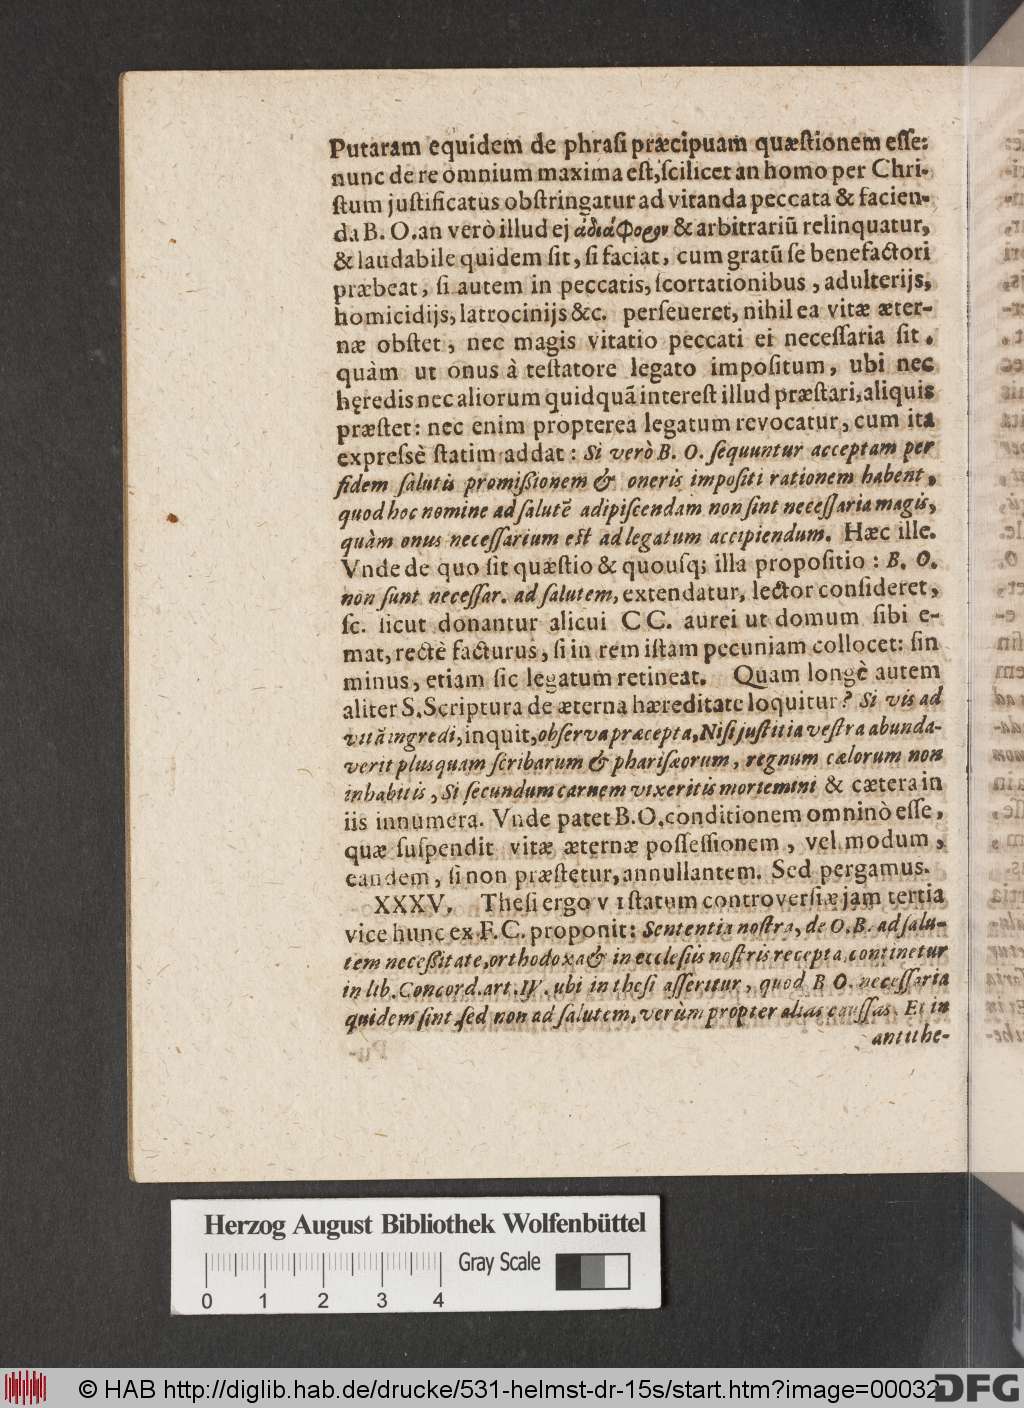 Putaram equidem de phraſi præcipuam quæſtionem eſſe:
nunc de re omnium maxima eſt, ſcilicet an homo per Chri-
ſtum juſtificatus obſtringatur ad vitanda peccata & facien-
da B. O. an verò illud ej ἀδιάφορον & arbitrariũ relinquatur,
& laudabile quidem ſit, ſi faciat, cum gratũ ſe benefactori
præbeat, ſi autem in peccatis, ſcortationibus, adulterijs,
homicidijs, latrocinijs &c. perſeueret, nihil ea vitæ æter-
næ obſtet, nec magis vitatio peccati ei neceſſaria ſit.
quàm ut onus à teſtatore legato impoſitum, ubi nec
hęredis nec aliorum quidquã intereſt illud præſtari, aliquis
præſtet: nec enim propterea legatum revocatur, cum ita
expreſsè ſtatim addat: Si verò B. O. ſequuntur acceptam per
fidem ſalutis promißionem & oneris impoſiti rationem habent,
quod hoc nomine ad ſalutẽ adipiſcendam non ſint neceſſaria magis,
quàm onus neceſſarium eſt ad legatum accipiendum. Hæc ille.
Vnde de quo ſit quæſtio & quouſq; illa propoſitio: B. O.
non ſunt neceſſar. ad ſalutem, extendatur, lector conſideret,
ſc. ſicut donantur alicui CC. aurei ut domum ſibi e-
mat, rectè facturus, ſi in rem iſtam pecuniam collocet: ſin
minus, etiam ſic legatum retineat. Quam longè autem
aliter S. Scriptura de æterna hæreditate loquitur? Si vis ad
vitã ingredi, inquit, obſerva præcepta, Niſi juſtitia veſtra abunda-
verit plus quam ſcribarum & phariſæorum, regnum cælorum non
inhabitis, Si ſecundum carnem vixeritis moriemini & cætera in
iis innumera. Vnde patet B. O. conditionem omninò eſſe,
quæ ſuſpendit vitæ æternæ poſſeſſionem, vel modum,
eandem, ſi non præſtetur, annullantem. Sed pergamus.
XXXV. Theſi ergo VI ſtatum controverſiæ jam tertia
vice hunc ex F. C. proponit: Sententia noſtra, de O. B. ad ſalu-
tem neceßitate, orthodoxa & in eccleſiis noſtris recepta, continetur
in lib. Concord. art. IV. ubi in theſi aſſeritur, quod B O. neceſſaria
quidem ſint, ſed non ad ſalutem, verùm propter alias cauſſas. Et in
antithe-
Herzog August Bibliothek Wolfenbüttel
Gray Scale
0 1 2 3 4
© HAB http://diglib.hab.de/drucke/531-helmst-dr-15s/start.htm?image=00032
DFG